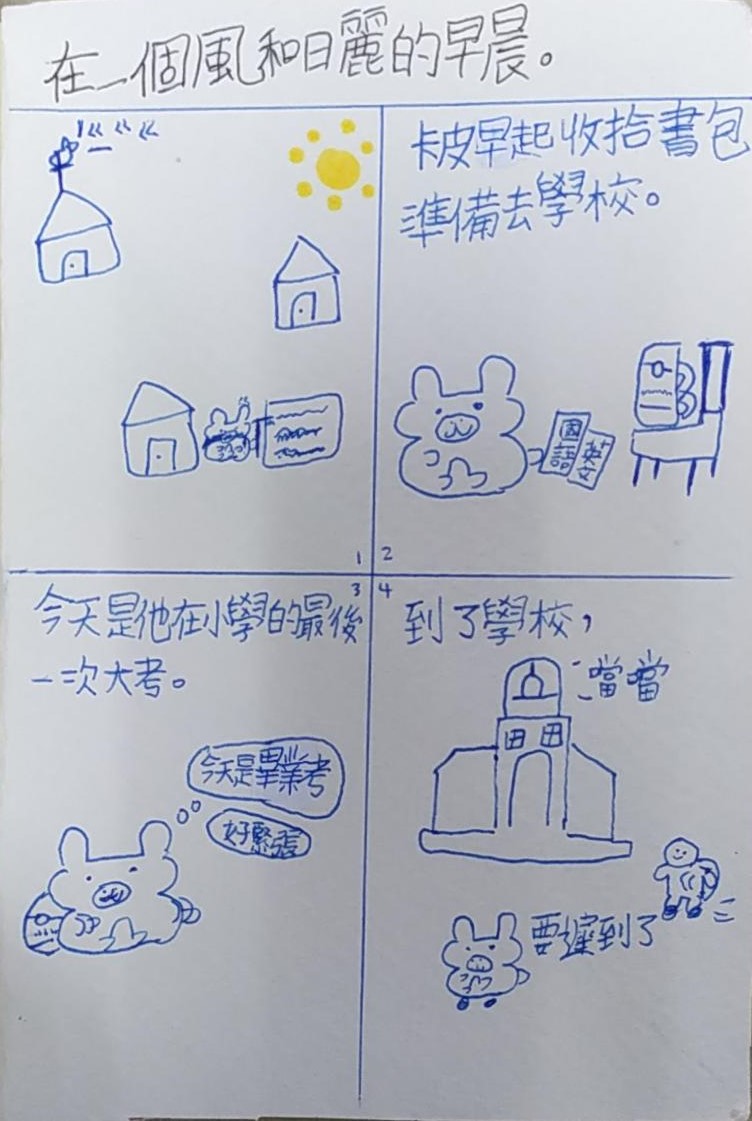 在一個風和日麗的早晨。
1
卡皮早起收拾書包
準備去學校。
國語
英文
2
3
今天是他在小學的最後
一次大考。
今天是畢業考
好緊張
4
到了學校，
噹噹
要遲到了